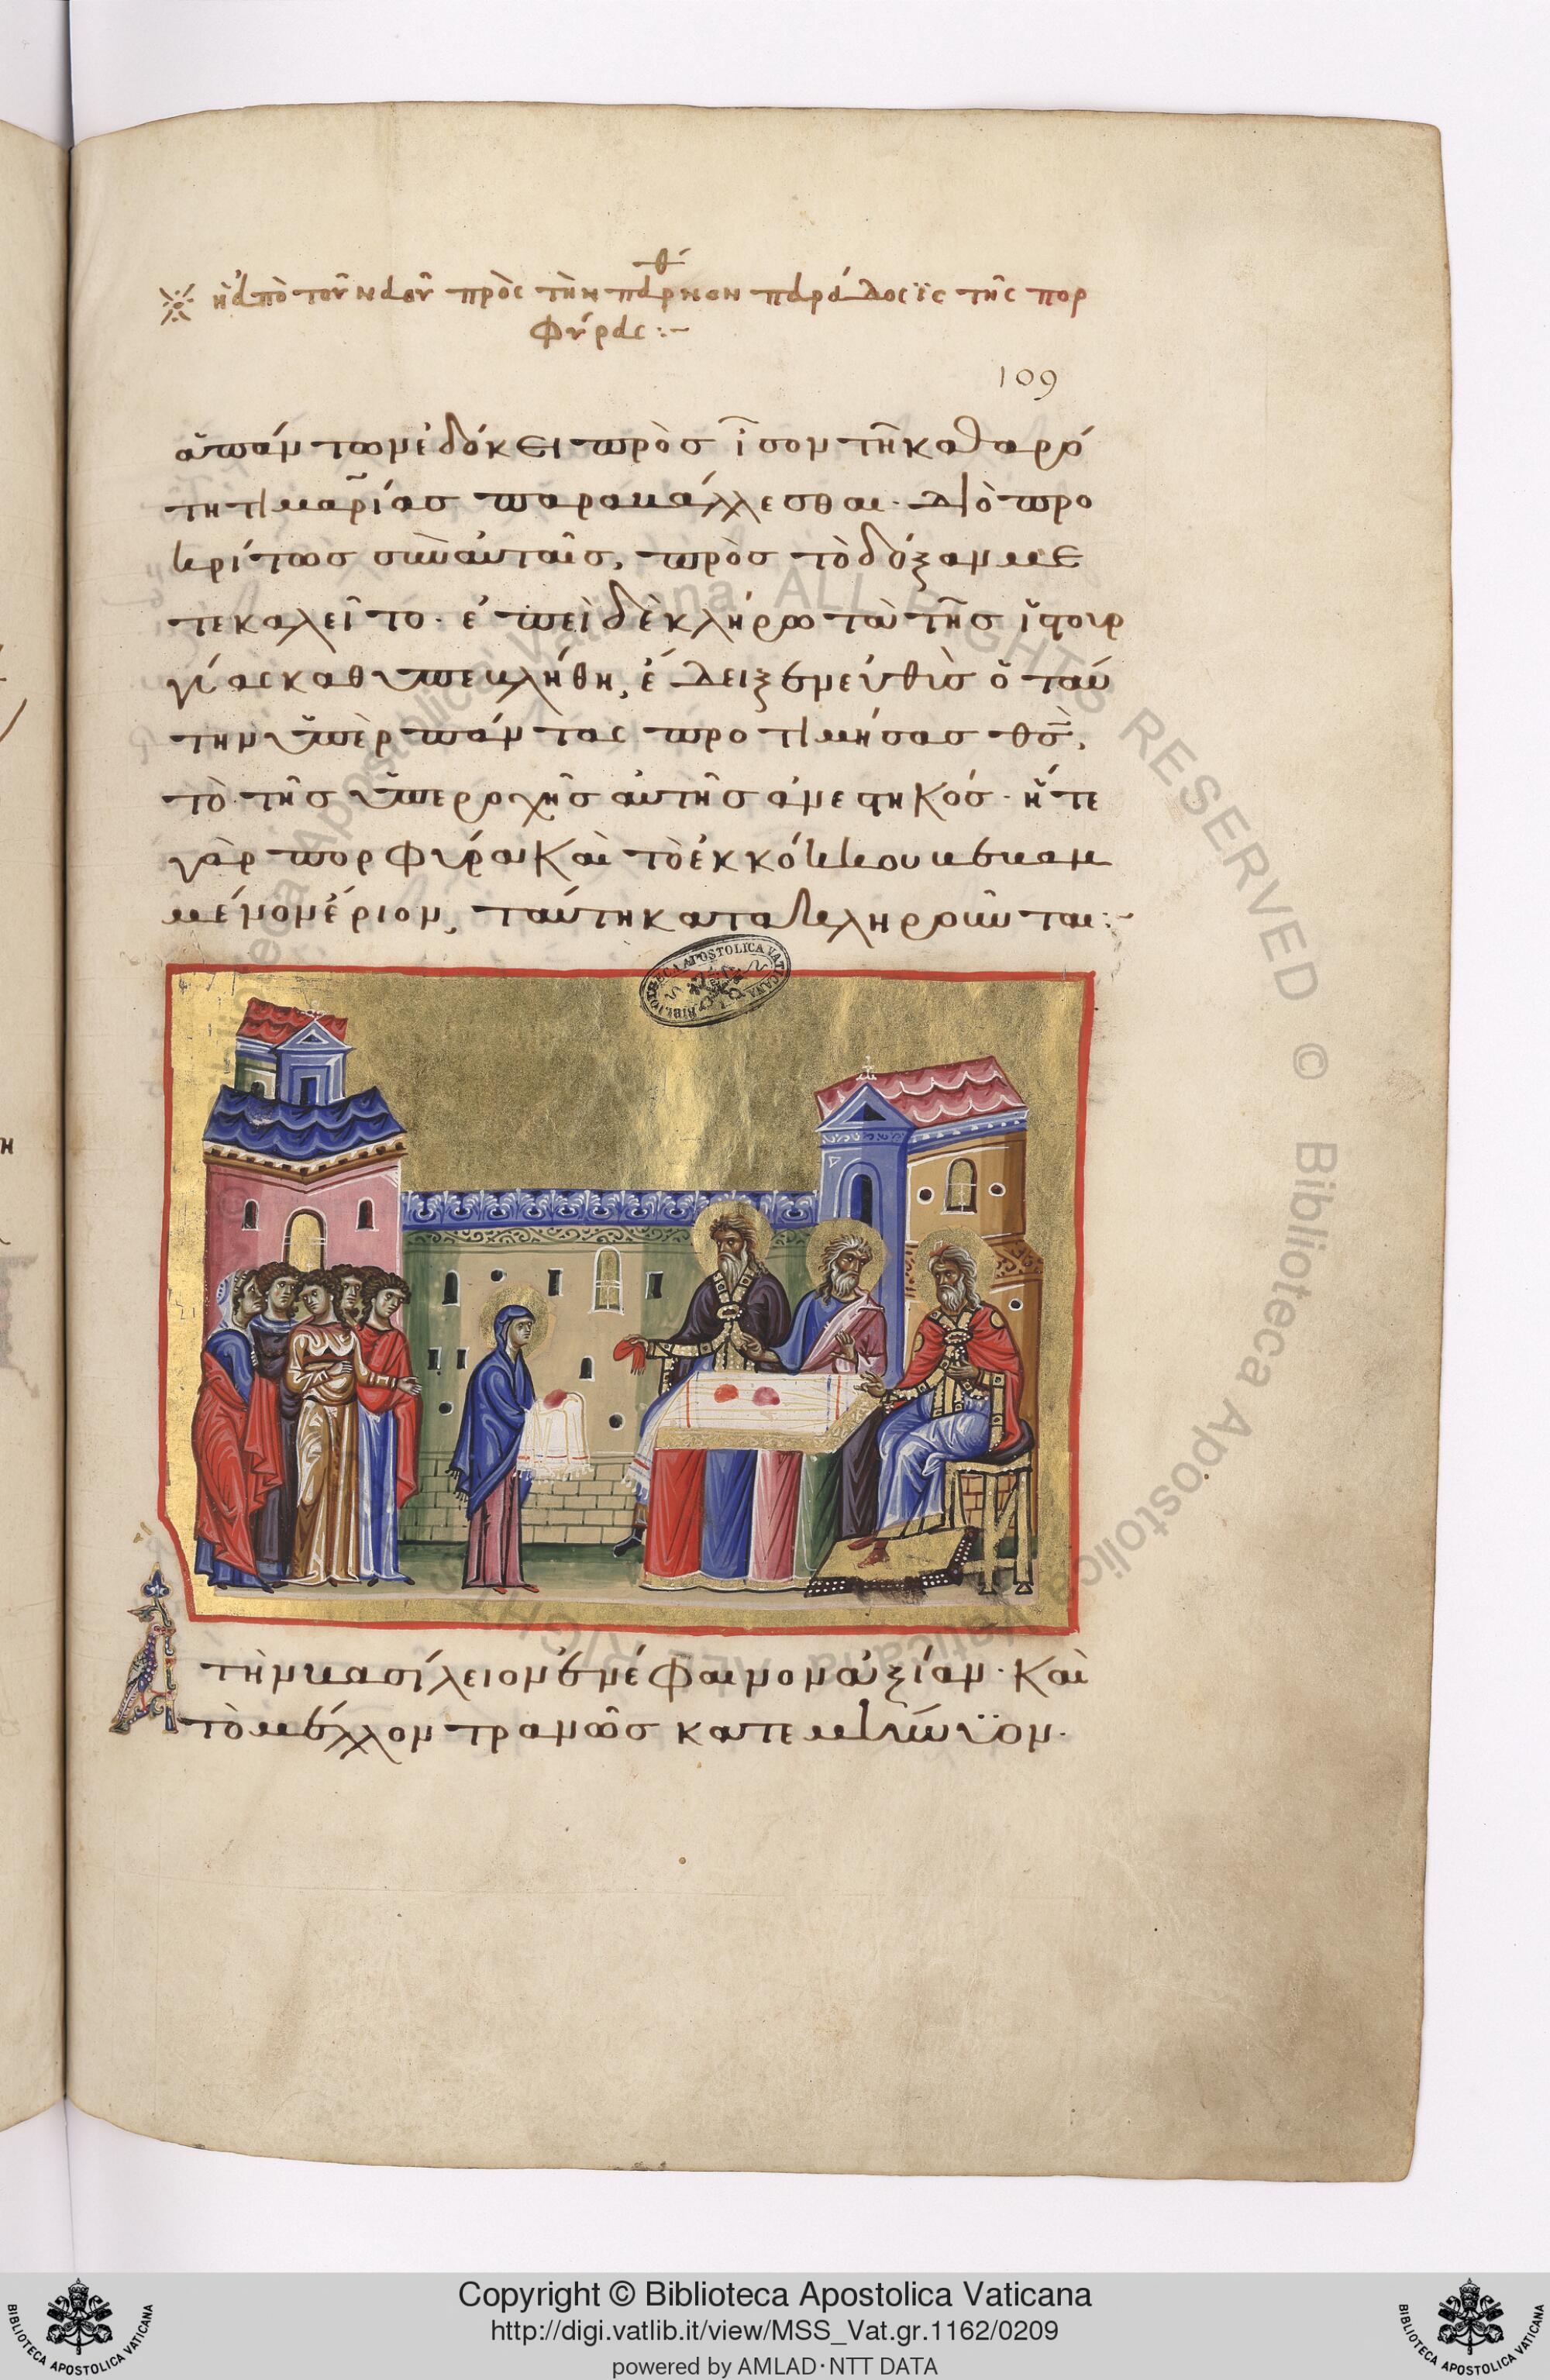 ἡ ἀπὸ τοῦ ναοῦ πρὸς τὴν παρθένον παράδοσϊς τῆς πορ
φύρας :-
109
ἁπάντων ἐδόκει πρὸσ ἶσον τῆ καθαρό
τητι μαρίασ παραβάλλεσθαι· διὸ προ
κρίτωσ σὺν αὐταῖσ, πρὸσ τὸ δόξαν με
τεκαλεῖτο· ἐπεὶ δὲ κλήρω τὰ τῆσ ἱστουρ
γίας καθυπεβλήθη, ἔδειξεν εὐθὺσ ὁ ταύ
την ὑπὲρ πάντας προτιμήσασ θσ,
τὸ τῆσ ὑπεροχῆσ αὐτῆσ ἀνεστηκόσ· ἥ τε
γὰρ πορφύρα καὶ τὸ ἐκ κόκκου βεβαμ
μένον ἔριον, ταύτη κατακληροῦνται :-
BIBLIOTECA APOSTOLICA VATICANA
Ἃ τὴν βασίλειον ἐνέφαινον ἀξίαν· καὶ
τὸ μέλλον τρανῶσ κατεμήνϋον·
Copyright © Biblioteca Apostolica Vaticana
http://digi.vatlib.it/view/MSS_Vat.gr.1162/0209
powered by AMLAD·NTT DATA
BIBLIOTECA APOSTOLICA VATICANA
BIBLIOTECA APOSTOLICA VATICANA
Biblioteca Apostolica Vaticana ALL RIGHTS RESERVED © Biblioteca Apostolica Vaticana ALL RIGHTS